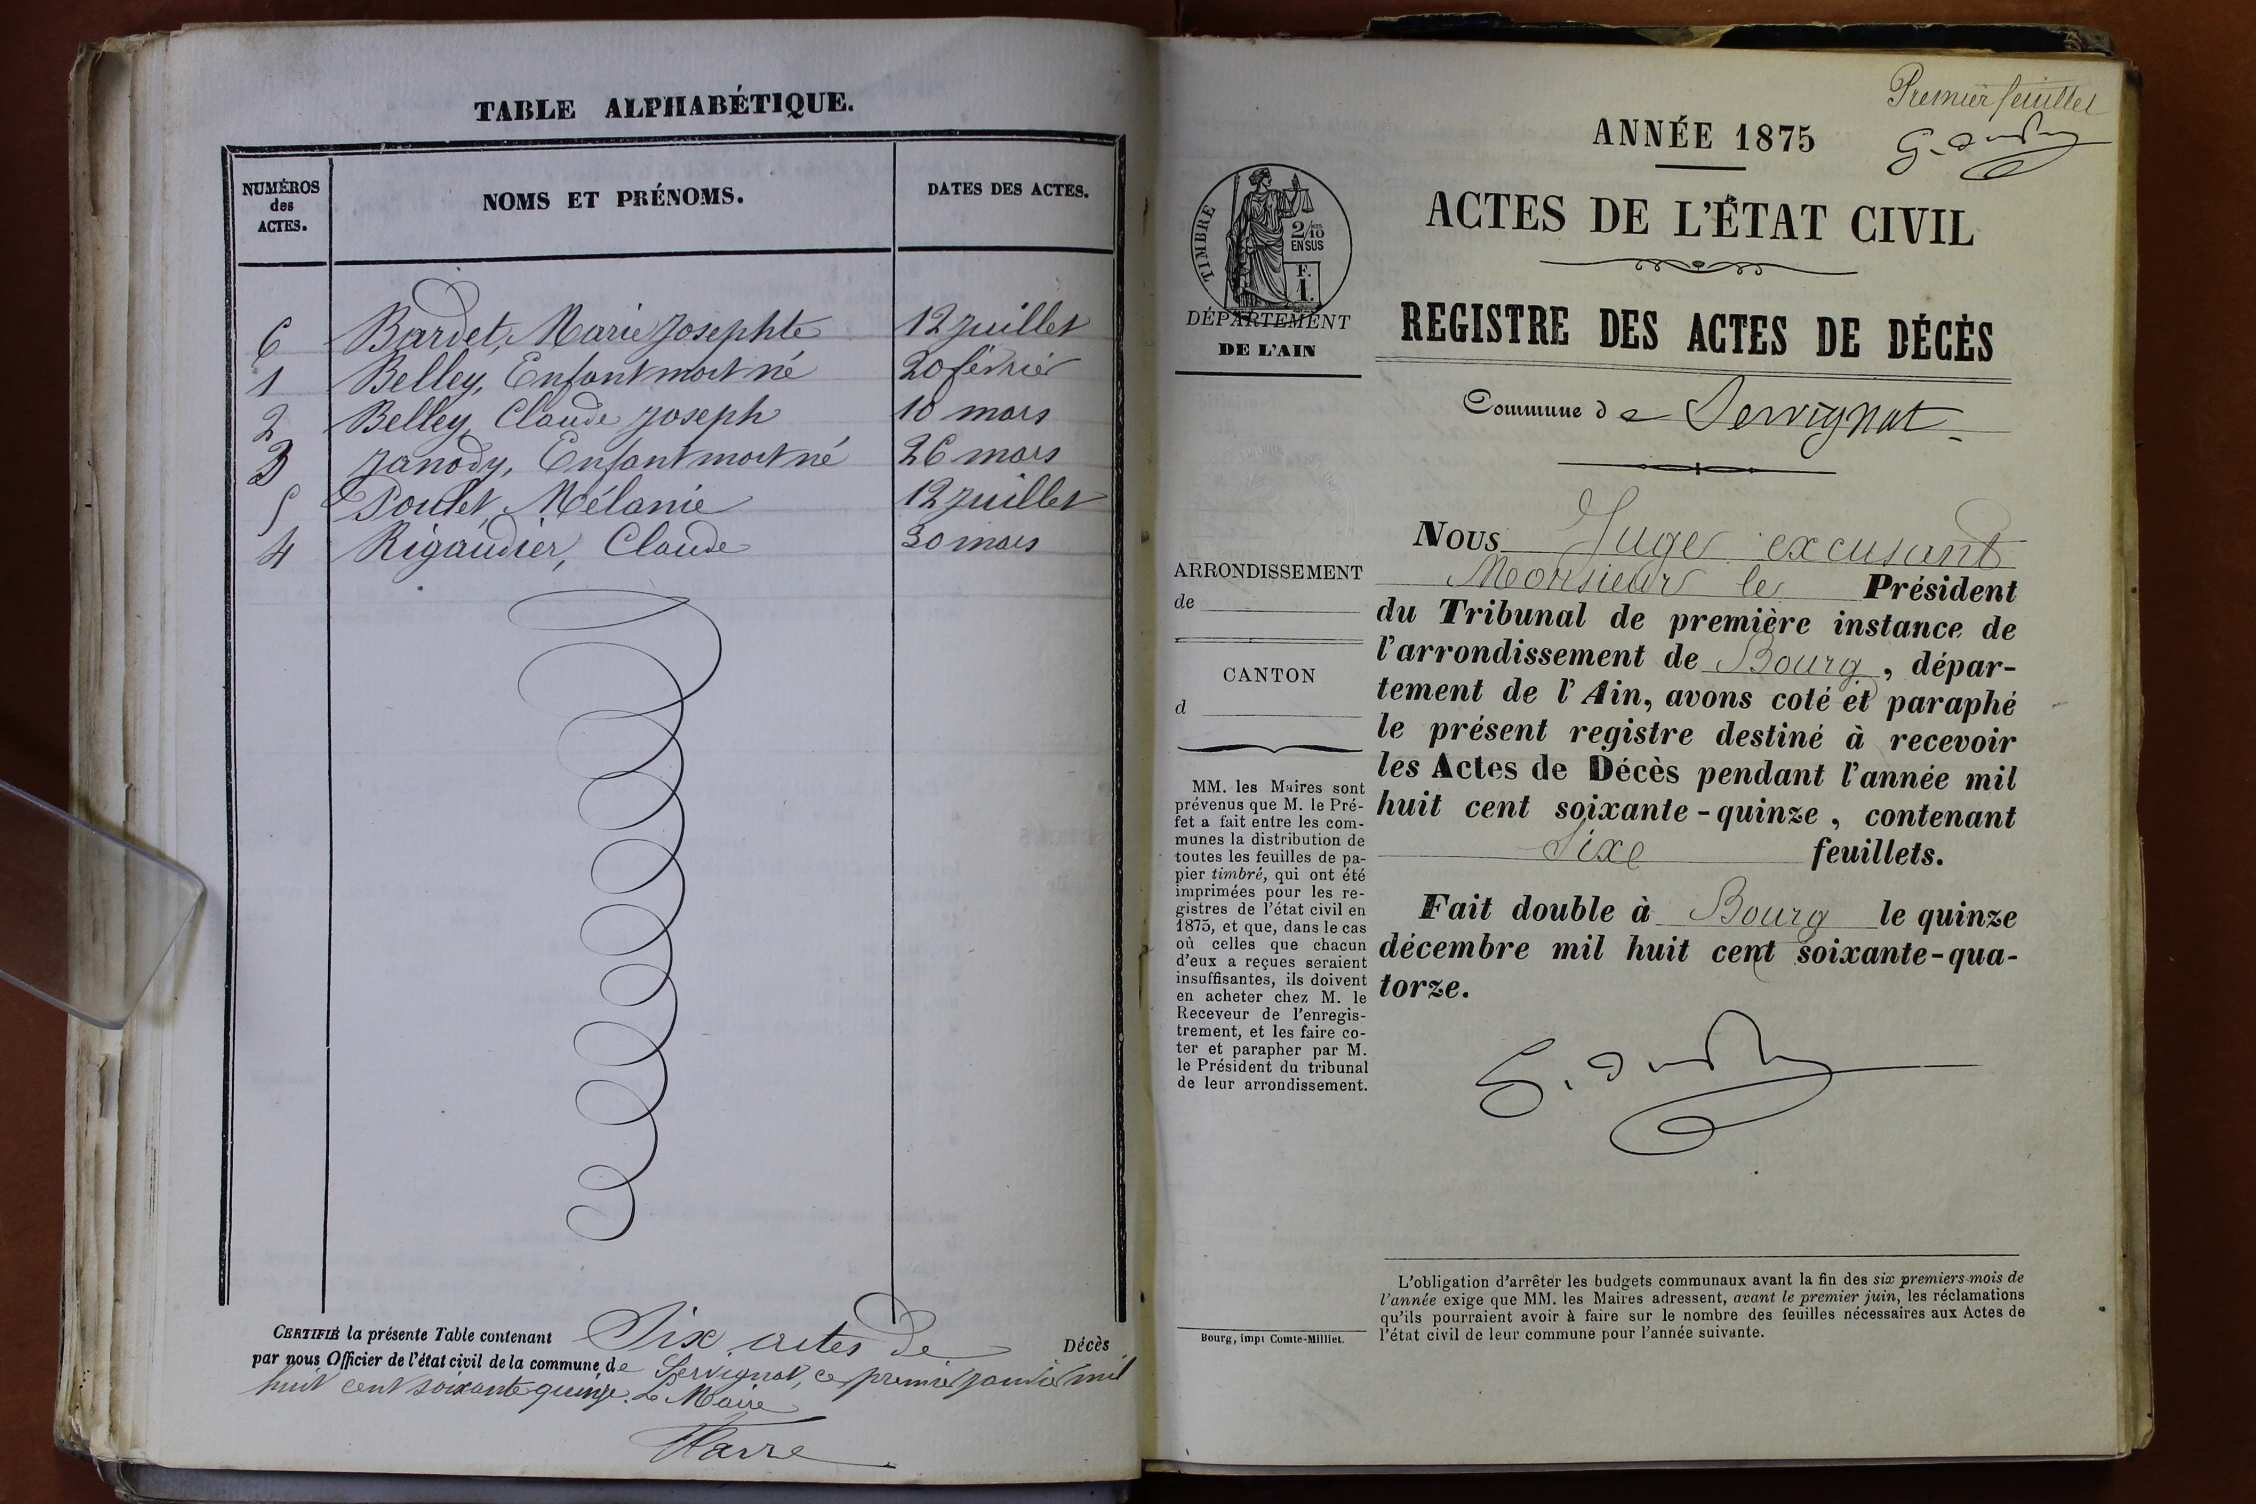 TABLE ALPHABÉTIQUE.
NUMÉROS
des
ACTES.
NOMS ET PRÉNOMS.
DATES DES ACTES.
6 Bardet, Marie Josephte 12 juillet
1 Belley, Enfant mort né 20 février
2 Belley, Claude Joseph 10 mars
3 Janody, Enfant mort né 26 mars
5 Poulet, Mélanie 12 juillet
4 Rigaudier, Claude 30 mars
CERTIFIÉ la présente Table contenant Six actes de Décès
par nous Officier de l'état civil de la commune de Servignat, ce premier janvier mil
huit cent soixante quinze. Le Maire
Premier feuillet
ANNÉE 1875
ACTES DE L'ÉTAT CIVIL
REGISTRE DES ACTES DE DÉCÈS
Commune de Servignat
TIMBRE
2/10
EN SUS
F.
1.
DÉPARTEMENT
DE L'AIN
ARRONDISSEMENT
de
CANTON
d
MM. les Maires sont
prévenus que M. le Pré-
fet a fait entre les com-
munes la distribution de
toutes les feuilles de pa-
pier timbré, qui ont été
imprimées pour les re-
gistres de l'état civil en
1875, et que, dans le cas
où celles que chacun
d'eux a reçues seraient
insuffisantes, ils doivent
en acheter chez M. le
Receveur de l'enregis-
trement, et les faire co-
ter et parapher par M.
le Président du tribunal
de leur arrondissement.
Bourg, impr Comte-Milliet.
Nous Juge excusant
Monsieur le Président
du Tribunal de première instance de
l'arrondissement de Bourg, dépar-
tement de l'Ain, avons coté et paraphé
le présent registre destiné à recevoir
les Actes de Décès pendant l'année mil
huit cent soixante-quinze, contenant
Sixe feuillets.
Fait double à Bourg le quinze
décembre mil huit cent soixante-qua-
torze.
L'obligation d'arrêter les budgets communaux avant la fin des six premiers mois de
l'année exige que MM. les Maires adressent, avant le premier juin, les réclamations
qu'ils pourraient avoir à faire sur le nombre des feuilles nécessaires aux Actes de
l'état civil de leur commune pour l'année suivante.